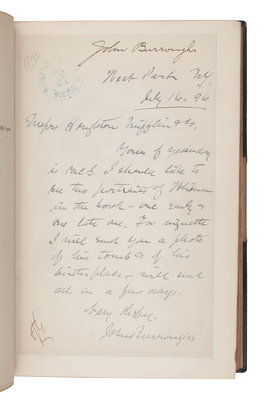 John Burroughs
West Park N.Y.
July 16. 96
Messrs Houghton Mifflin & Co.
Yours of yesterday
is recd. I should like to
see two portraits of Whitman
in the book - one early &
one late one, For vignette
I will send you a photo
of his tomb & of his
birth-place, - will send
all in a few days.
Very Resply,
John Burroughs